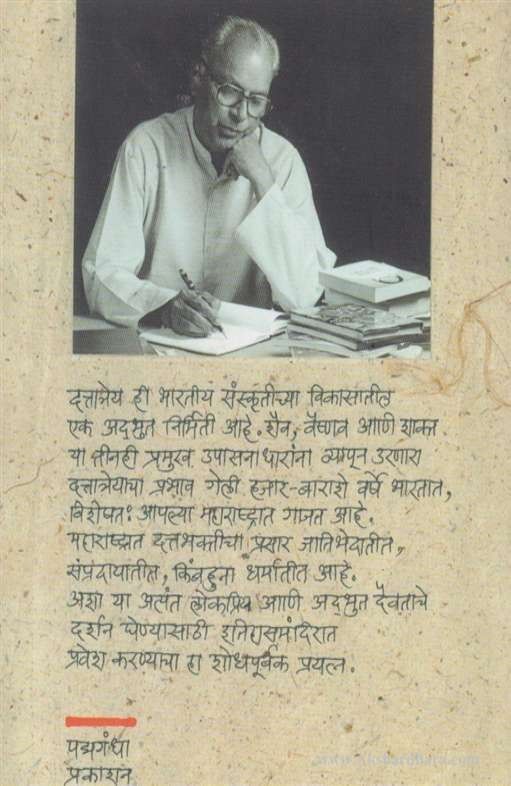 दत्तात्रेय ही भारतीय संस्कृतीच्या विकासातील
एक अद्‌भुत निर्मिती आहे. शैव, वैष्णव आणि शाक्त
या तीनही प्रमुख उपासनाधारांना व्यापून उरणारा
दत्तात्रेयाचा प्रभाव गेली हजार-बाराशे वर्षे भारतात,
विशेषतः आपल्या महाराष्ट्रात गाजत आहे.
महाराष्ट्रात दत्तभक्तीचा प्रसार जातिभेदातीत,
संप्रदायातीत, किंबहुना धर्मातीत आहे.
अशा या अत्यंत लोकप्रिय आणि अद्‌भुत दैवताचे
दर्शन घेण्यासाठी इतिहासमंदिरात
प्रवेश करण्याचा हा शोधपूर्वक प्रयत्न.
पद्मगंधा
प्रकाशन
www.akshardhara.com